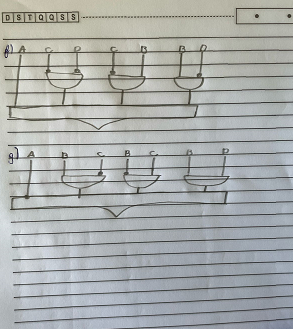 D S T Q Q S S
f) A C D C B B D
g) A B C B C B D